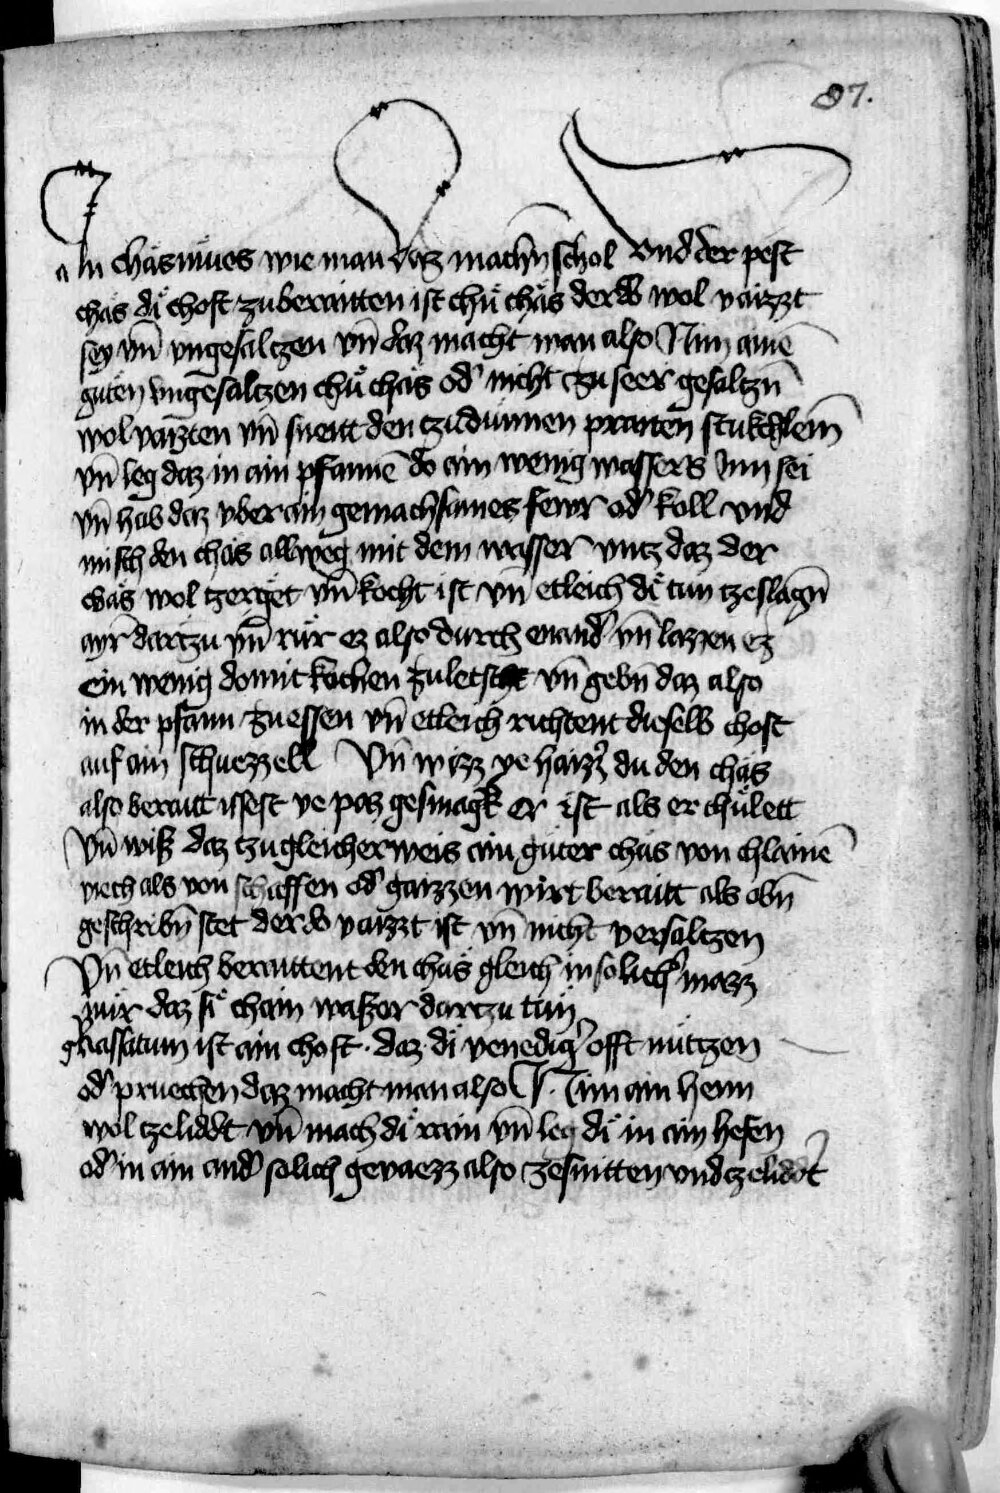 87.
Ain chäsmües wie man daz machn̄ schol Vnd der pest
chäs dı̈ chost zuberaitten ist chů chäs der do wol vaizzt
sey vn̄ vngesaltzen vn̄ daz macht man also Nim ainē
güten vngesaltzen chů chäs od' nicht zu seer gesaltzn̄
wol vaizten vn̄ sneit den tzu dünnen praiten stukchlein̄
vn̄ leg daz in ain pfannē do ain wenig wassers Inn sei
vn̄ hab daz vber ain gemachsames fewr od' koll vnd
misch den chäs allweg mit dem wasser vntz daz der
chäs wol tzerget vn̄ kocht ist vn̄ etleich dı̈ tun tzeslagn̄
ayr dartzu vn̄ rür ez also durch enand' vn̄ lazzen ez
ein wenig domit kochen zuletscht vn̄ gebn̄ daz also
in der pfann zu essen vn̄ etleich richtent dieselb chost
auf ain schuezzell Vn̄ wizz ye haizz' du den chäs
also berait issest ye paz gesmagk er ist als er chület
Vn̄ wiß daz tzu gleicherweis ain güter chäs von chlainē
viech als von schaffen od' gaizzen wirt berait als obn̄
geschribn̄ stet der do vaizzt ist vn̄ nicht versaltzen
Vn̄ etleich beraittent den chäs gleich in solich' mazz
nür daz sı̈ chain waßer dartzu tün
ghassatum ist ain chost · daz · dı̈ venedig' offt nützen
od' pruechen daz macht man also Nim ain henn
wol tzelidt vn̄ mach dı̈ rain vn̄ leg dı̈ in ain hefen
od' in ain and' solich gevaezz also zesnitten vnd tzelidt